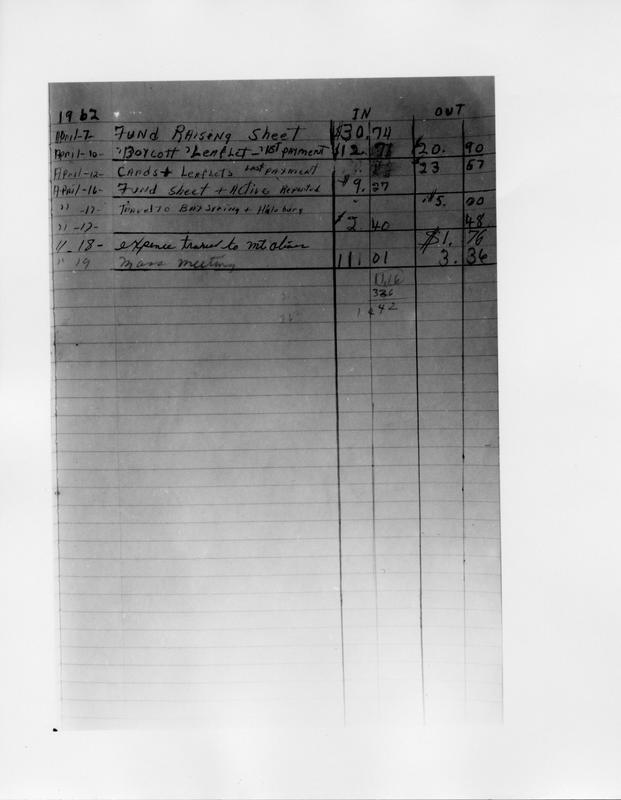 1962 IN OUT
April-7- Fund Raising Sheet $30.74
April-10- "Boycott" Leaflet - 1st payment $12. $20. 90
April-12- Cards + Leaflets Last payment $23 67
April-16- Fund sheet + Active Reported $9. 27
" -17- Travel to Bay Spring + " $5. 00
" -17- $2. 40 48
11- 18- expence travel to mt olive $1. 76
" 19 Mass meeting 11. 01 3. 36
11.16
336